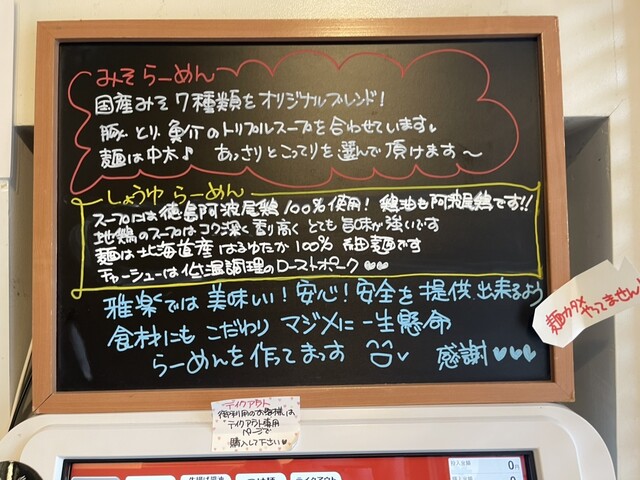 みそらーめん
国産みそ7種類をオリジナルブレンド!
豚、とり、魚介のトリプルスープを合わせています。
麺は中太♪ あっさりとこってりを選んで頂けます〜
しょうゆらーめん
スープには徳島阿波尾鶏100%使用! 鶏油も阿波尾鶏です!!
地鶏のスープはコク深く香り高くとても旨味が強いです
麺は北海道産はるゆたか100% 細麺です
チャーシューは低温調理のローストポーク♡♡
雅楽では美味しい!安心!安全を提供出来るよう
食材にもこだわりマジメに一生懸命
らーめんを作ってまっす
感謝♡♡♡
麺カタメ
やってません!
テイクアウト
御利用のお客様は、
テイクアウト専用
ページで
購入して下さい♥
つけ麺
テイクアウト
投入金額
0円